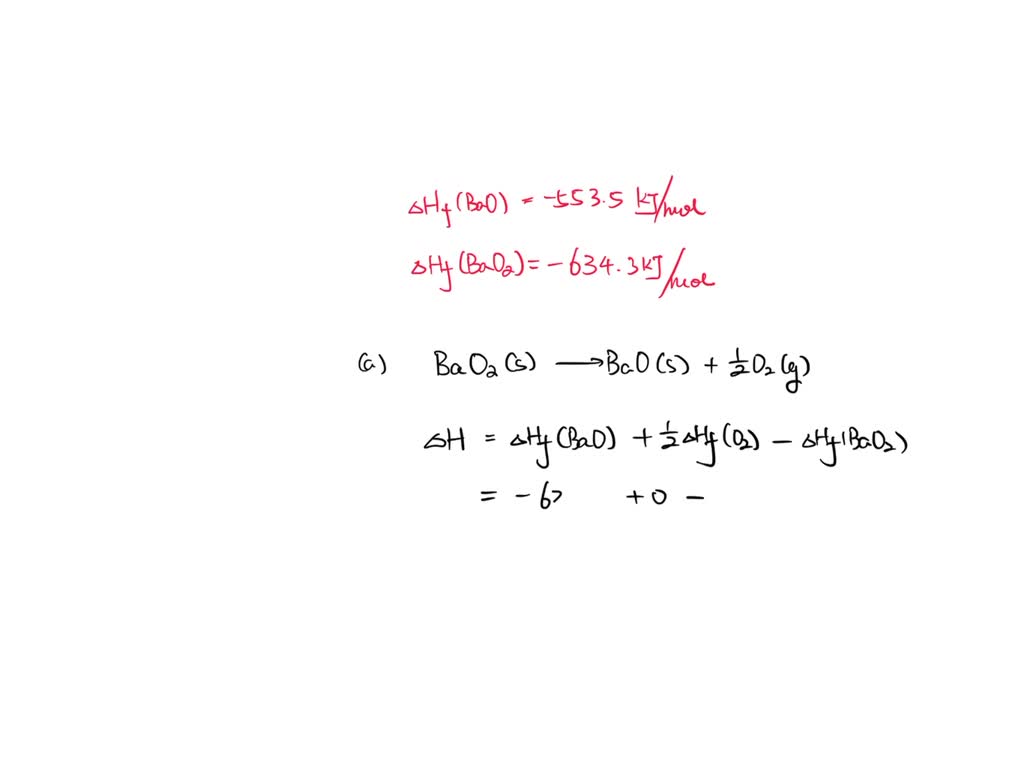 ΔHf (BaO) = -553.5 kJ/mol
ΔHf (BaO₂) = -634.3 kJ/mol
(a) BaO₂ (s) → BaO (s) + ½ O₂ (g)
ΔH = ΔHf (BaO) + ½ ΔHf (O₂) - ΔHf (BaO₂)
= - 6> + 0 -